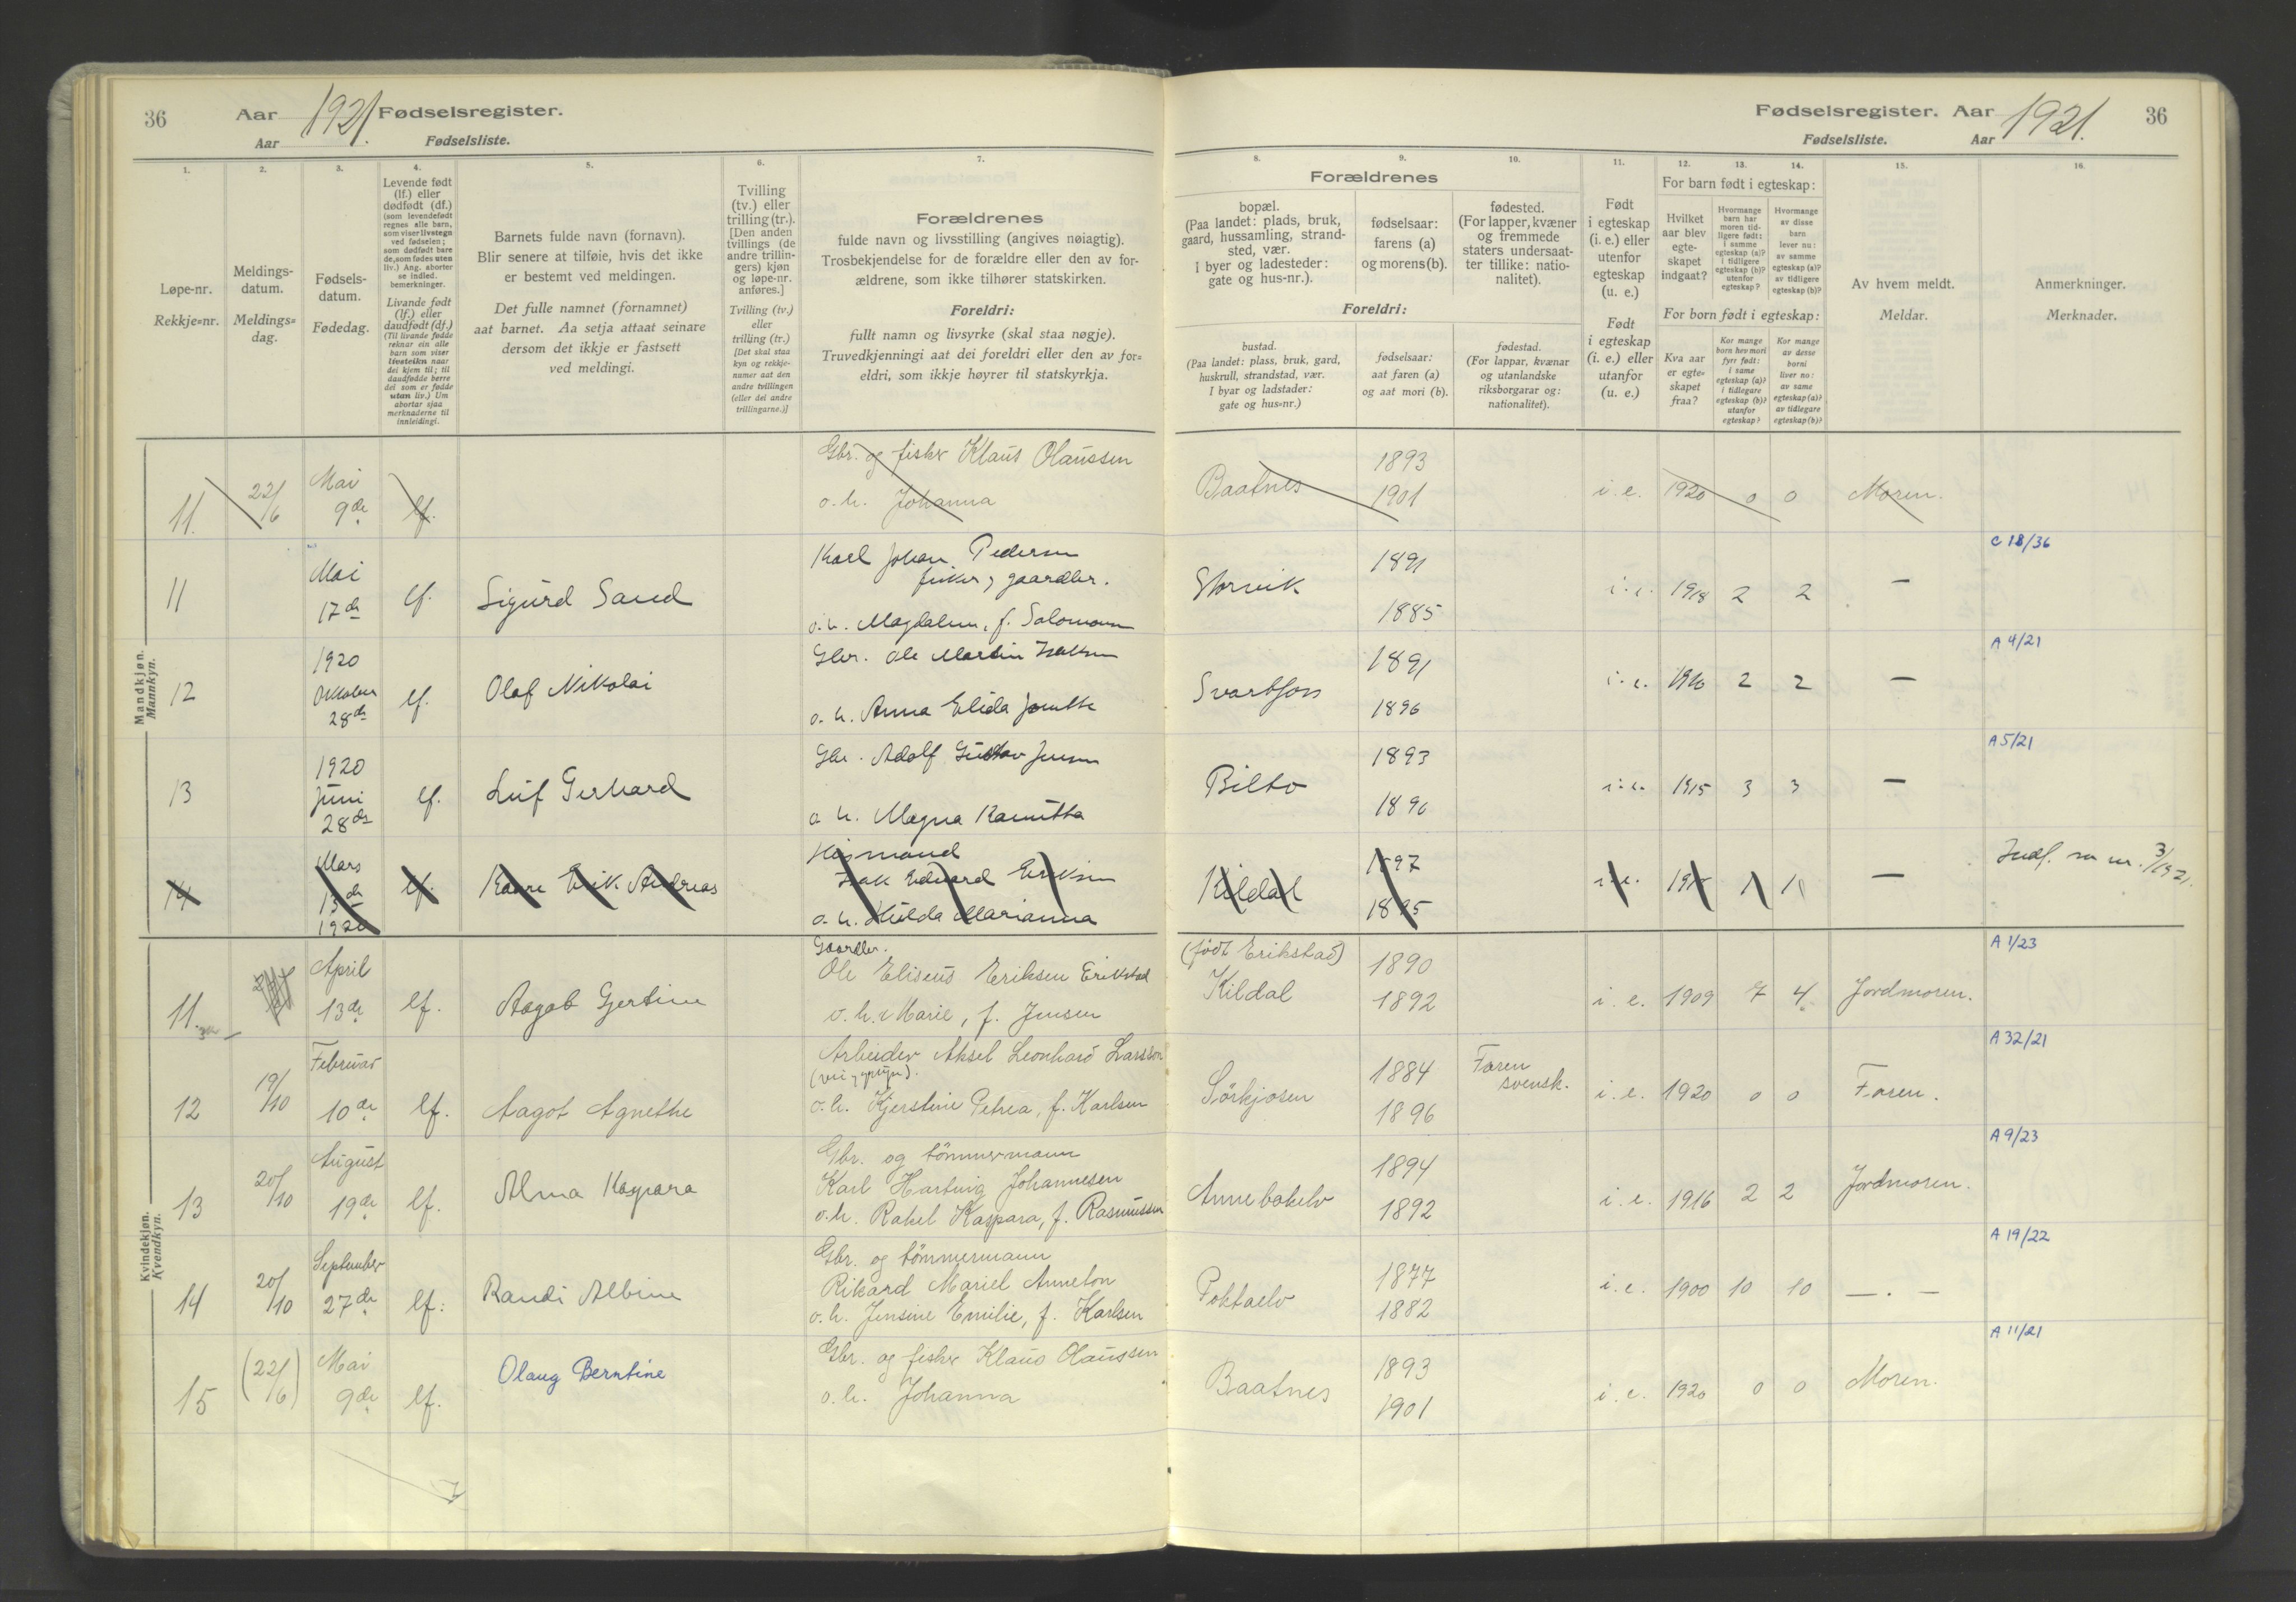 36 Aar 1921. Fødselsregister.
Aar Fødselsliste.
1. 2. 3. 4. 5. 6. 7.
Løpe-nr.
Rekkje=nr.
Meldings-
datum.
Meldings=
dag.
Fødsels-
datum.
Fødedag.
Levende født
(lf.) eller
dødfødt (df.)
(som levendefødt
regnes alle barn,
som viser livstegn
ved fødselen;
som dødfødt bare
de, som fødes uten
liv.) Ang. aborter
se indled.
bemerkninger.
Livande født
(lf.) eller
daudfødt (df.)
(Til livande fødde
reknar ein alle
barn som viser
livsteikn naar
dei kjem til; til
daudfødde berre
dei som er fødde
utan liv.) Um
abortar sjaa
merknaderne til
innleidingi.
Barnets fulde navn (fornavn).
Blir senere at tilføie, hvis det ikke
er bestemt ved meldingen.
Det fulle namnet (fornamnet)
aat barnet. Aa setja attaat seinare
dersom det ikkje er fastsett
ved meldingi.
Tvilling
(tv.) eller
trilling (tr.).
[Den anden
tvillings (de
andre trillin-
gers) kjøn
og løpe-nr.
anføres.]
Tvilling (tv.)
eller
trilling (tr.)
[Det skal staa
kyn og rekkje-
numer aat den
andre tvillingen
(eller dei andre
trillingarne.)]
Forældrenes
fulde navn og livsstilling (angives nøiagtig).
Trosbekjendelse for de forældre eller den av for-
ældrene, som ikke tilhører statskirken.
Foreldri:
fullt namn og livsyrke (skal staa nøgje).
Truvedkjenningi aat dei foreldri eller den av for=
eldri, som ikkje høyrer til statskyrkja.
Fødselsregister. Aar 1921. 36
Fødselsliste. Aar
8. 9. 10. 11. 12. 13. 14. 15. 16.
Forældrenes
bopæl.
(Paa landet: plads, bruk,
gaard, hussamling, strand-
sted, vær.
I byer og ladesteder:
gate og hus-nr.).
fødselsaar:
farens (a)
og morens (b).
fødested.
(For lapper, kvæner
og fremmede
staters undersaat-
ter tillike: natio-
nalitet).
Foreldri:
bustad.
(Paa landet: plass, bruk, gard,
huskrull, strandstad, vær.
I byar og ladstader:
gate og hus=nr.)
fødselsaar:
aat faren (a)
og aat mori (b).
fødestad.
(For lappar, kvænar
og utanlandske
riksborgarar og:
nationalitet).
Født
i egteskap
(i. e.) eller
utenfor
egteskap
(u. e.)
Født
i egteskap
(i. e.) eller
utanfor
(u. e.)
For barn født i egteskap:
Hvilket
aar blev
egte-
skapet
indgaat?
Hvormange
barn har
moren tid-
ligere født:
i samme
egteskap (a)?
i tidligere
egteskap (b)?
utenfor
egteskap?
Hvormange
av disse
barn
lever nu:
av samme
egteskap (a)?
av tidligere
egteskap (b)?
For born født i egteskap:
Kva aar
er egte=
skapet
fraa?
Kor mange
born hev mori
fyrr født:
i same
egteskap (a)?
i tidlegare
egteskap (b)?
utanfor
egteskap?
Kor mange
av desse
borni
liver no:
av same
egteskap (a)?
av tidlegare
egteskap (b)?
Av hvem meldt.
Meldar.
Anmerkninger.
Merknader.
Mandkjøn.
Mannkyn.
11. 22/6 Mai 9de lf. Gbr. og fisker Klaus Olaussen
o. h. Johanna
Baatnes 1893 1901 i. e. 1920 0 0 Moren.
11 Mai 17de lf. Sigurd Sand Karl Johan Pedersen
fisker, gaardbr.
o. h. Magdalene, f. Salomonsen
Storvik 1891 1885 i. e. 1918 2 2 — C 18/36
12 1920 Oktober 28de lf. Olaf Nikolai Gbr. Ole Martin Isaksen
o. h. Anna Elida
Svartfoss 1891 1896 i. e. 1916 2 2 — A 4/21
13 1920 Juni 28de lf. Leif Gerhard Gbr. Adolf Gustav Jensen
o. h. Magna
Bilto 1893 1896 i. e. 1915 3 3 — A 5/21
14 Mars 13de 1920 lf. Kaare Erik Andreas Husmand
Isak Edvard Eriksen
o. h. Hilda Marianna
Kildal 1897 1895 i. e. 1 1 — Indf. nr. 3/1921.
Kvindekjøn.
Kvendkyn.
11. April 13de lf. Aagot Gjertine Gaardbr.
Ole Eliseus Eriksen Erikstad
o. h. Marie, f. Jensen
(født Erikstad)
Kildal 1890 1892 i. e. 1909 7 4. Jordmoren. A 1/23
12 19/10 Februar 10de lf. Aagot Agnethe Arbeider Aksel Leonhard Larsson
o. h. Kjerstine Petrea, f. Karlsen
Sörkjosen 1884 1896 Faren svensk. i. e. 1920 0 0 Faren. A 32/21
13 20/10 August 19de lf. Alma Kaspara Gbr. og tömmermann
Karl Hartvig Johannesen
o. h. Rakel Kaspara, f. Rasmussen
Annebakelv 1894 1892 i. e. 1916 2 2 Jordmoren. A 9/23
14 20/10 September 27de lf. Randi Albine Gbr. og tömmermann
Rikard Mariel Anneton
o. h. Jensine Emilie, f. Karlsen
Poktaelv 1877 1882 i. e. 1900 10 10 — . — A 19/22
15 (22/6) Mai 9de lf. Olaug Berntine Gbr. og fisker Klaus Olaussen
o. h. Johanna
Baatnes 1893 1901 i. e. 1920 0 0 Moren. A 11/21